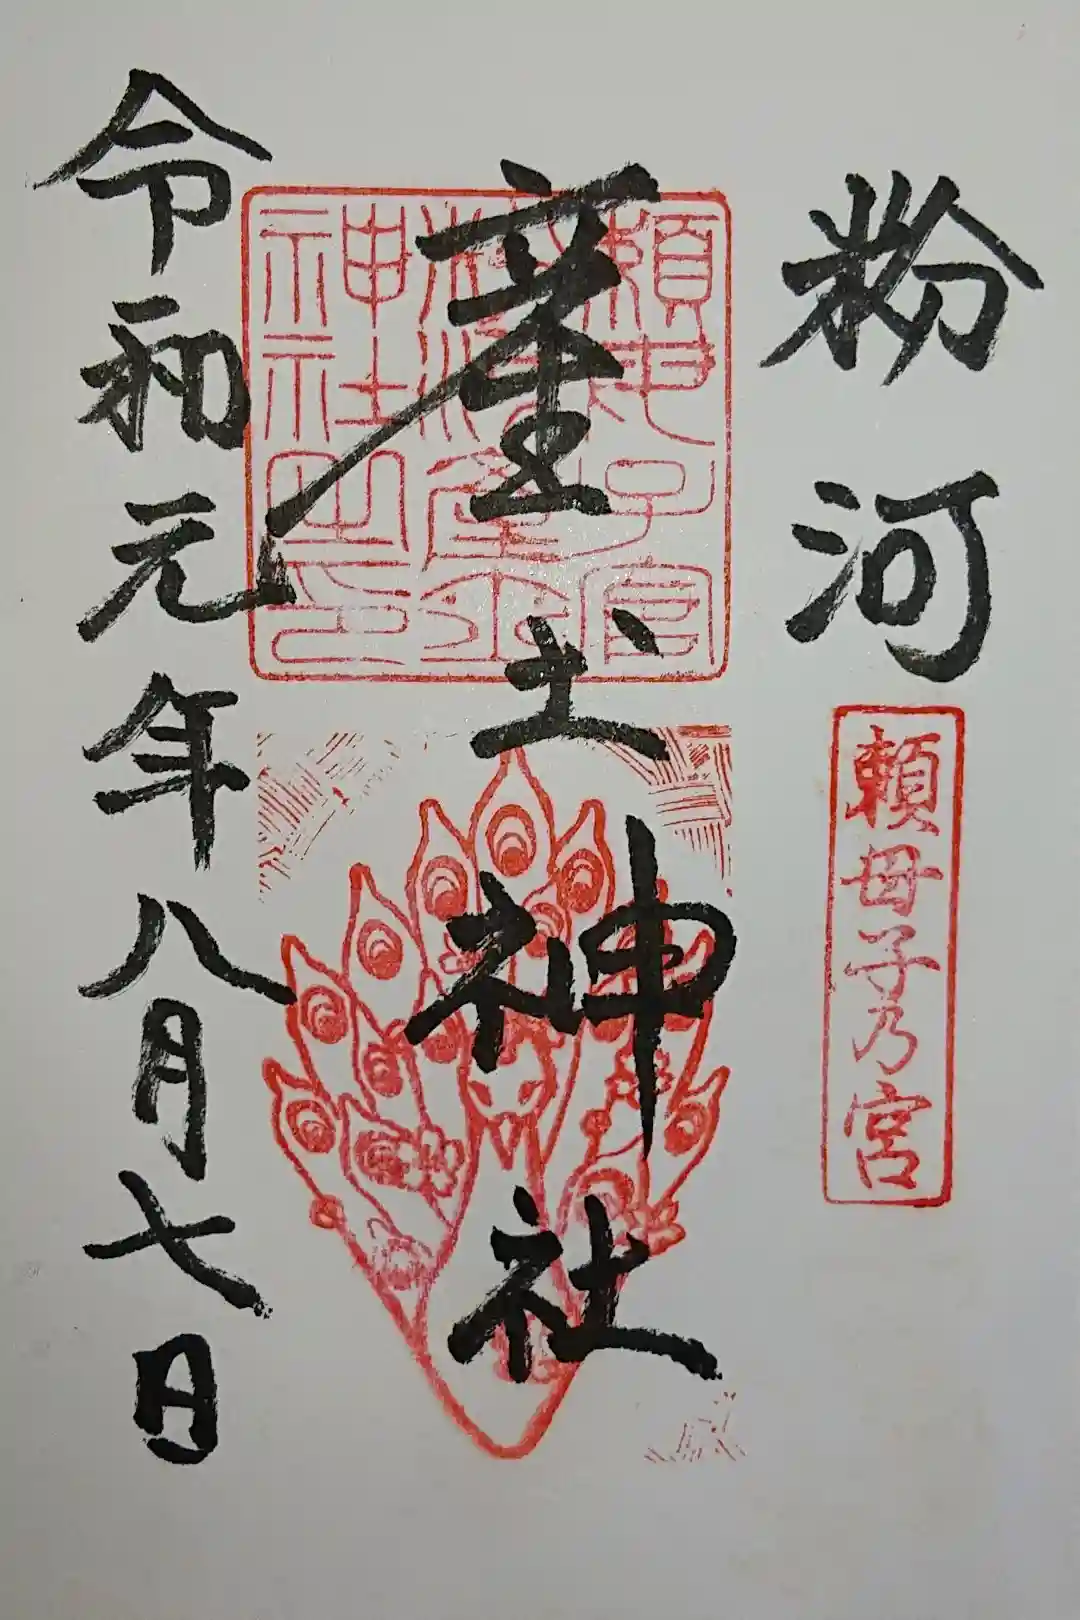 粉河
頼母子乃宮
産土神社
頼也子宮
粉河産土
神社之印
令和元年八月七日